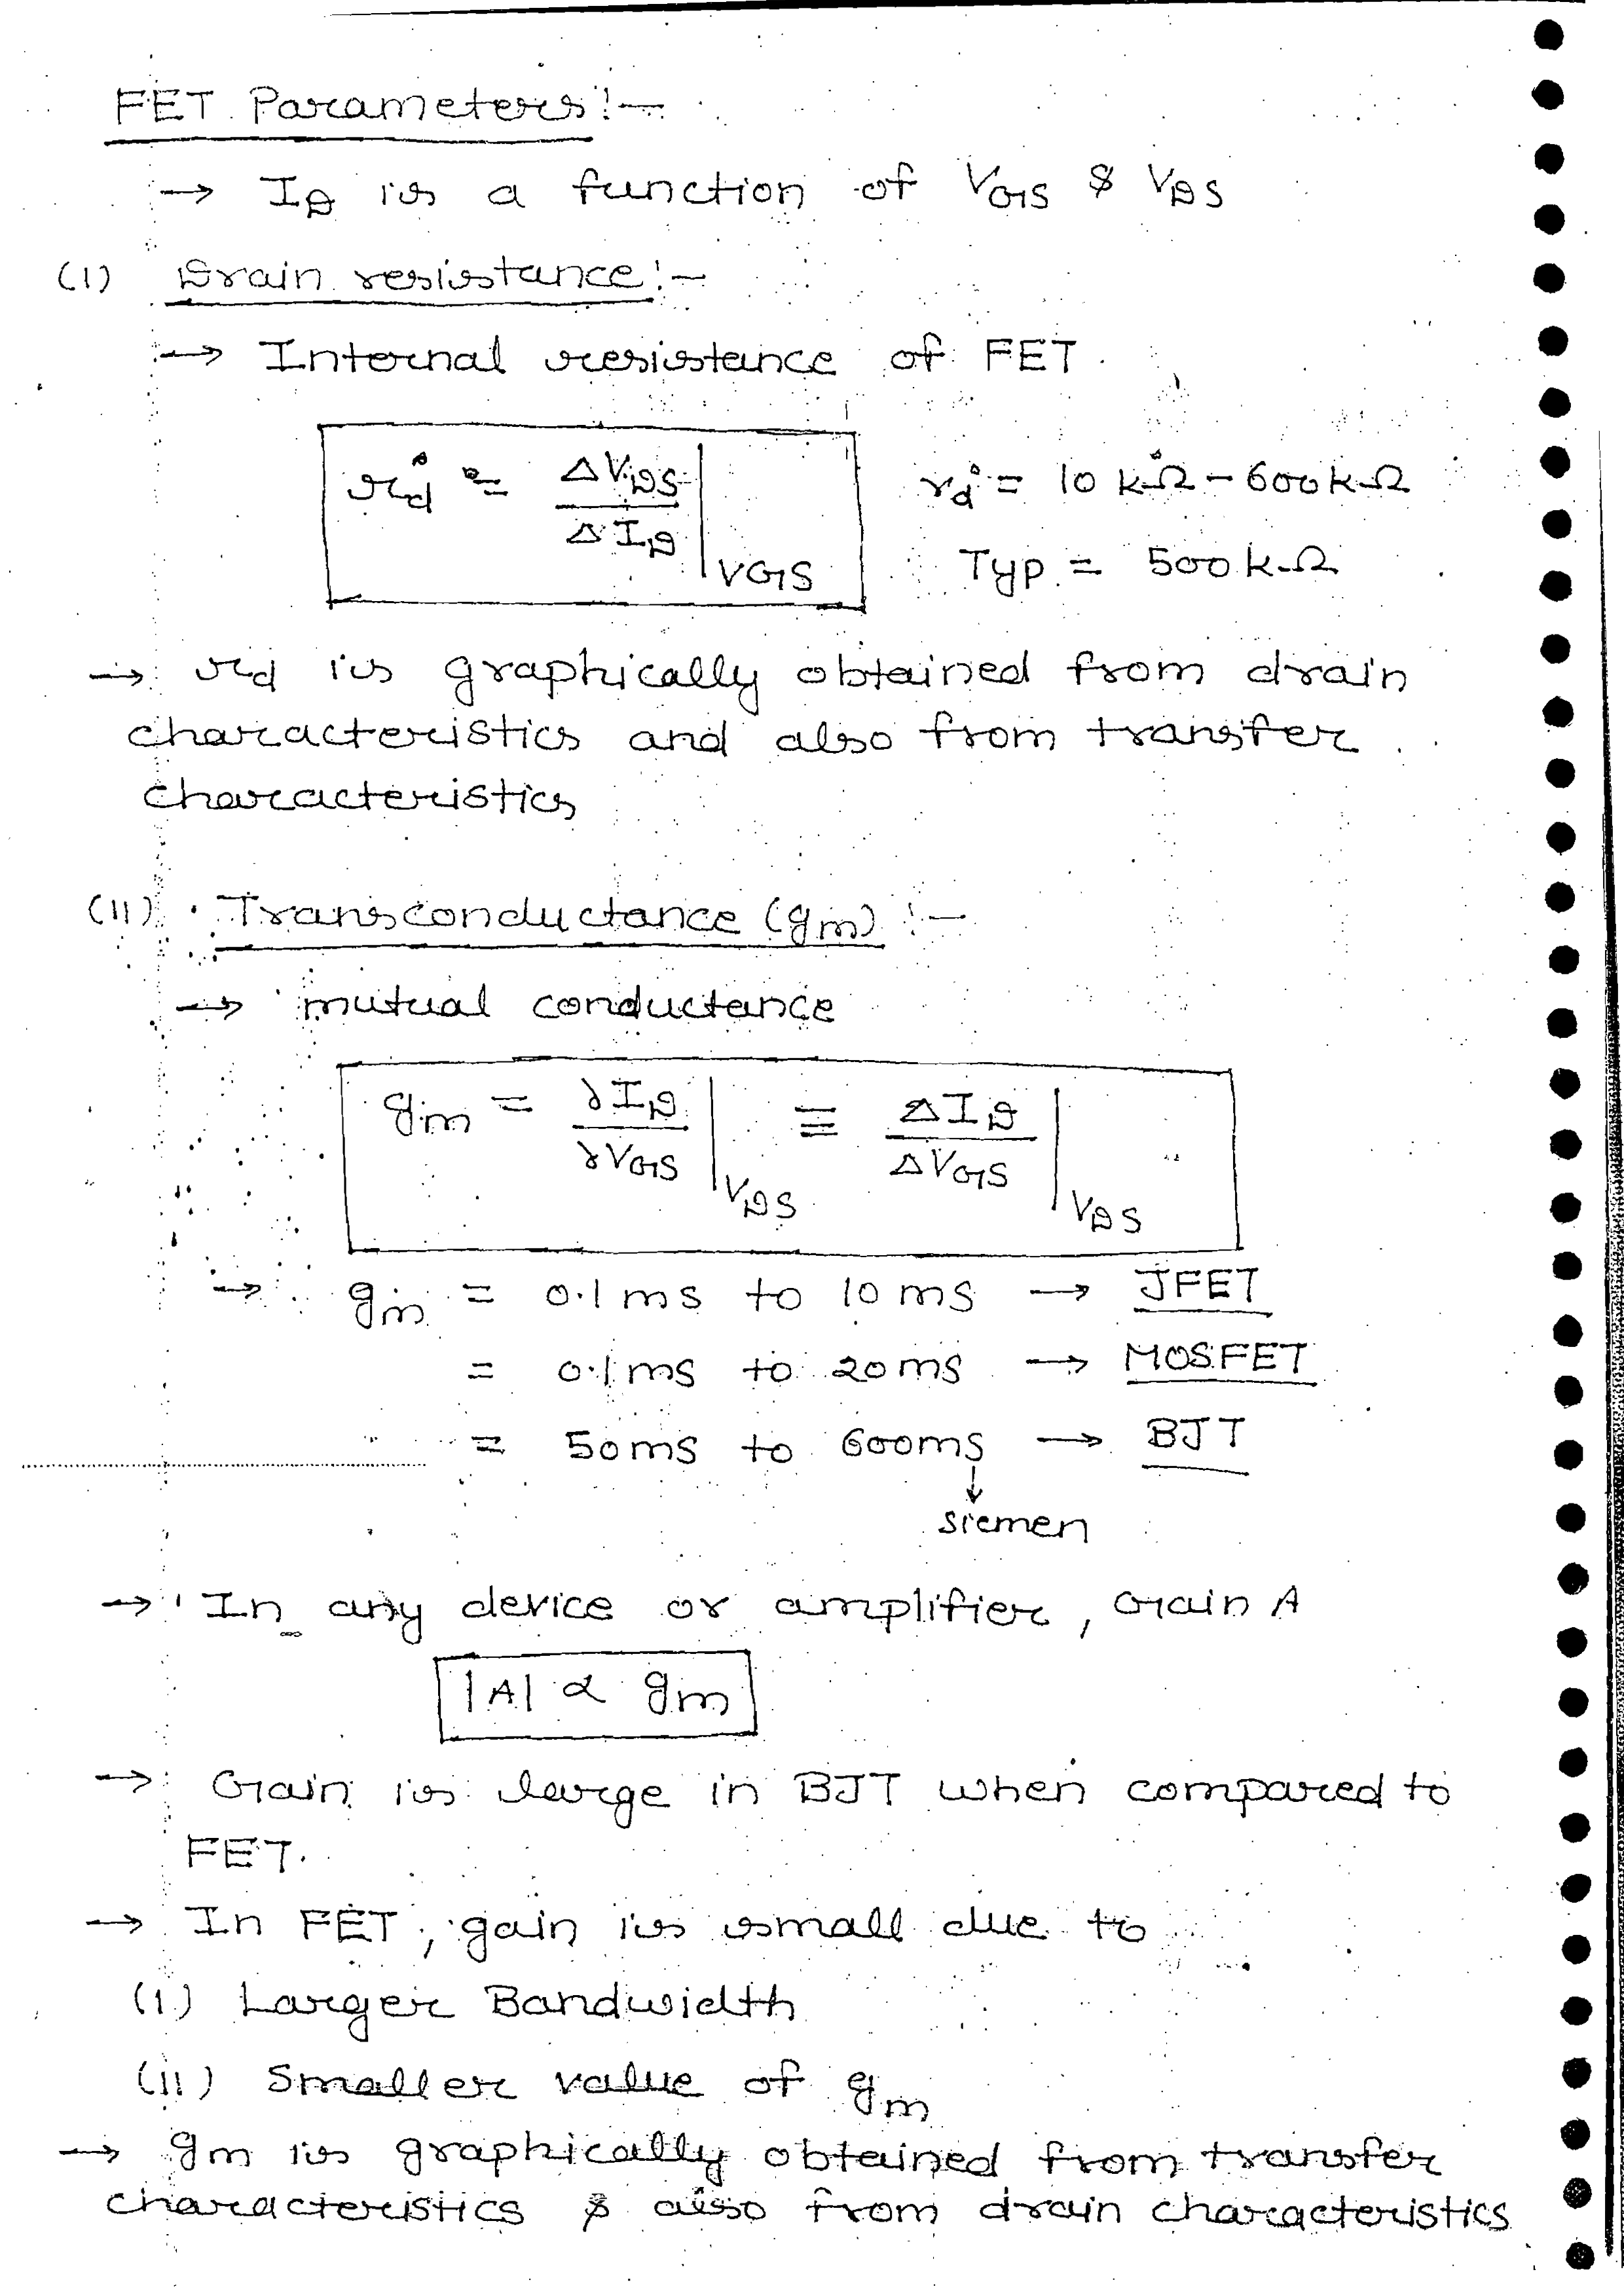 FET Parameters:-
→ I_D is a function of V_GS & V_DS
(I) Drain resistance:-
→ Internal resistance of FET
r_d = ΔV_DS / ΔI_D | V_GS
r_d = 10 kΩ - 600 kΩ
Typ = 500 kΩ
→ r_d is graphically obtained from drain
characteristics and also from transfer
characteristics
(II) Transconductance (g_m) :-
→ mutual conductance
g_m = ∂I_D / ∂V_GS | V_DS ≡ ΔI_D / ΔV_GS | V_DS
→ g_m = 0.1 ms to 10 ms → JFET
= 0.1 ms to 20 ms → MOSFET
= 50 ms to 600 ms → BJT
↓
siemen
→ In any device or amplifier, Gain A
|A| ∝ g_m
→ Gain is large in BJT when compared to
FET.
→ In FET, gain is small due to
(i) Larger Bandwidth
(ii) Smaller value of g_m
→ g_m is graphically obtained from transfer
characteristics & also from drain characteristics